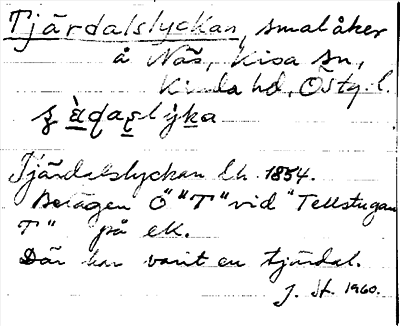 Tjärdalslyckan, smal åker
å Näs, Kisa sn,
Kinda hd, Östg. l.
Tjärdalslyckan lh 1854.
Belägen Ö "T" vid "Tellstugan
T" på ek.
Där har varit en tjärdal.
J. H. 1960.